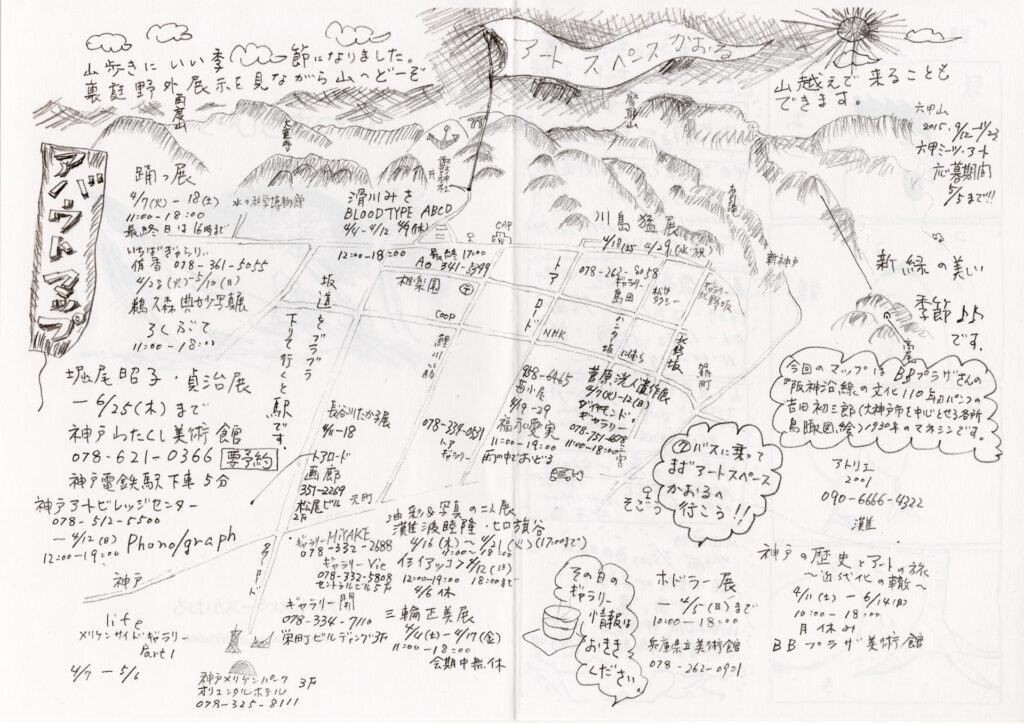 アートスペースかおる
山歩きにいい季節になりました。
裏庭野外展示を見ながら山へどーぞ
山越えで来ることも
できます。
六甲山
2015.9/12-11/23
六甲ミーツ・アート
応募期間
5/5まで!!!
アバウトマップ
再度山
大竜寺
摩耶山
布引滝
新神戸
踊っ展
4/7(火)-18(土)
11:00-18:00
最終日は16時まで
水の科学博物館
滑川みさ
BLOODTYPE ABCD
4/4-4/12
12:00-18:00
最終17:00
341-5399
CAP
川島猛展
4/18(土)-4/29(水・祝)
078-262-8058
ギャラリー
島田
いちばぎゃらりぃ
侑香 078-361-5055
4/28(火)-5/10(日)
鵜久森典妙写真展
ろくぶて
11:00-18:00
坂道をブラブラ
下りて行くと駅です。
相楽園
COOP
鯉川筋
トアロード
NHK
ハンター坂
北野坂
新緑の美しい
季節
です。
堀尾昭子・貞治展
-6/25(木)まで
神戸わたくし美術館
078-621-0366 要予約
神戸電鉄駅下車5分
長谷川たかる展
4/11-18
トアロード
画廊
351-2269
松尾ビル
2F
元町
078-334-0531
トア
ギャラリー
4/19-29
福永愛実
11:00-19:00
雨の中でおどる
菅原洸人遺作展
4/7(火)-12(日)
ダイヤモンド・
ギャラリー
11:00-18:00
三宮
そごう
今回のマップはBBプラザさんの
『阪神沿線の文化110年』パンフの
吉田初三郎(大神戸市を中心とせる名所
鳥瞰図絵)1930年のマネシンです。
②バスに乗って
まずアートスペース
かおるへ
行こう!!
アトリエ
2001
090-6666-4322
灘
神戸アートビレッジセンター
078-512-5500
-4/12(日) Phono/graph
12:00-19:00
神戸
ギャラリーMiYAKE
078-332-2688
ギャラリーVie
078-332-5808
セントラルビル5F
油彩&写真の二人展
灘波睦隆・ヒロ旗谷
4/16(木)〜4/21(火)(17:00まで)
11:00〜18:00
12:00-19:00
4/6休
ギャラリー開
078-334-7110
栄町ビルディング3F
三輪正美展
4/4(土)-4/17(金)
11:00-18:00
会期中無休
life
メリケンサイドギャラリー
Part1
4/7-5/6
神戸メリケンパーク
オリエンタルホテル 3F
078-325-8111
その日の
ギャラリー
情報は
おききく
ください。
ホドラー展
4/5(日)まで
10:00-18:00
兵庫県立美術館
078-262-0901
神戸の歴史とアートの旅
〜近代化の轍〜
4/11(土)-6/14(日)
10:00-18:00
月休み
BBプラザ美術館